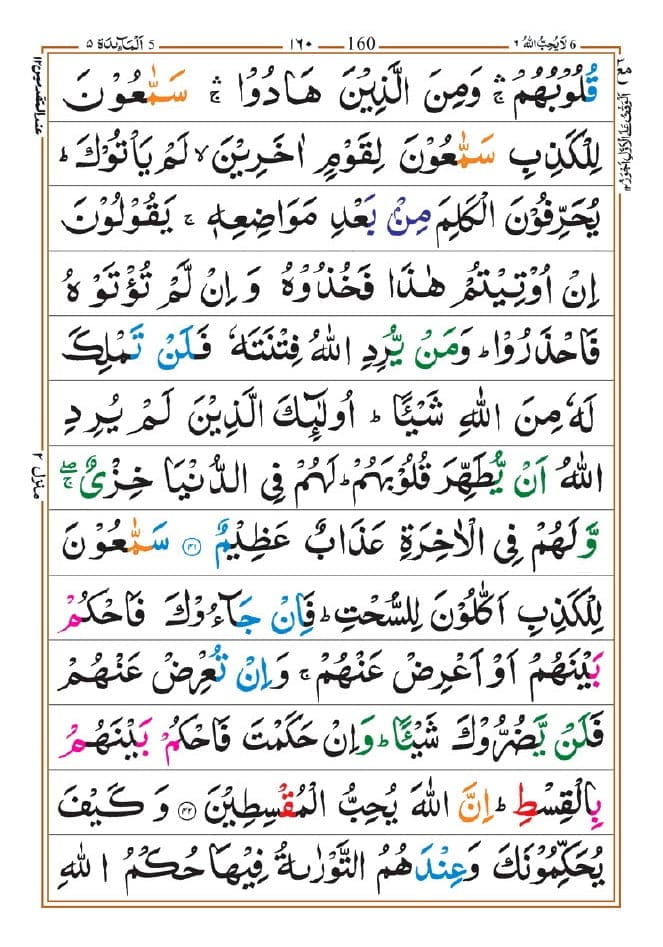 ٦ لَا يُحِبُّ اللهُ 6
١٦٠ 160
5 اَلْمَآئِدَة ٥
قُلُوْبُهُمْ ۛۚ وَمِنَ الَّذِيْنَ هَادُوْا ۛۚ سَمّٰعُوْنَ
لِلْكَذِبِ سَمّٰعُوْنَ لِقَوْمٍ اٰخَرِيْنَ ۙ لَمْ يَاْتُوْكَ ؕ
يُحَرِّفُوْنَ الْكَلِمَ مِنْۢ بَعْدِ مَوَاضِعِهٖ ۚ يَقُوْلُوْنَ
اِنْ اُوْتِيْتُمْ هٰذَا فَخُذُوْهُ وَاِنْ لَّمْ تُؤْتَوْهُ
فَاحْذَرُوْا ؕ وَمَنْ يُّرِدِ اللهُ فِتْنَتَهٗ فَلَنْ تَمْلِكَ
لَهٗ مِنَ اللهِ شَيْـًٔا ؕ اُولٰٓئِكَ الَّذِيْنَ لَمْ يُرِدِ
اللهُ اَنْ يُّطَهِّرَ قُلُوْبَهُمْ ؕ لَهُمْ فِى الدُّنْيَا خِزْىٌ ۖۚ
وَّلَهُمْ فِى الْاٰخِرَةِ عَذَابٌ عَظِيْمٌ ﴿٤١﴾ سَمّٰعُوْنَ
لِلْكَذِبِ اَكّٰلُوْنَ لِلسُّحْتِ ؕ فَاِنْ جَآءُوْكَ فَاحْكُمْ
بَيْنَهُمْ اَوْ اَعْرِضْ عَنْهُمْ ۚ وَاِنْ تُعْرِضْ عَنْهُمْ
فَلَنْ يَّضُرُّوْكَ شَيْـًٔا ؕ وَاِنْ حَكَمْتَ فَاحْكُمْ بَيْنَهُمْ
بِالْقِسْطِ ؕ اِنَّ اللهَ يُحِبُّ الْمُقْسِطِيْنَ ﴿٤٢﴾ وَكَيْفَ
يُحَكِّمُوْنَكَ وَعِنْدَهُمُ التَّوْرٰىةُ فِيْهَا حُكْمُ اللهِ
منزل ٢